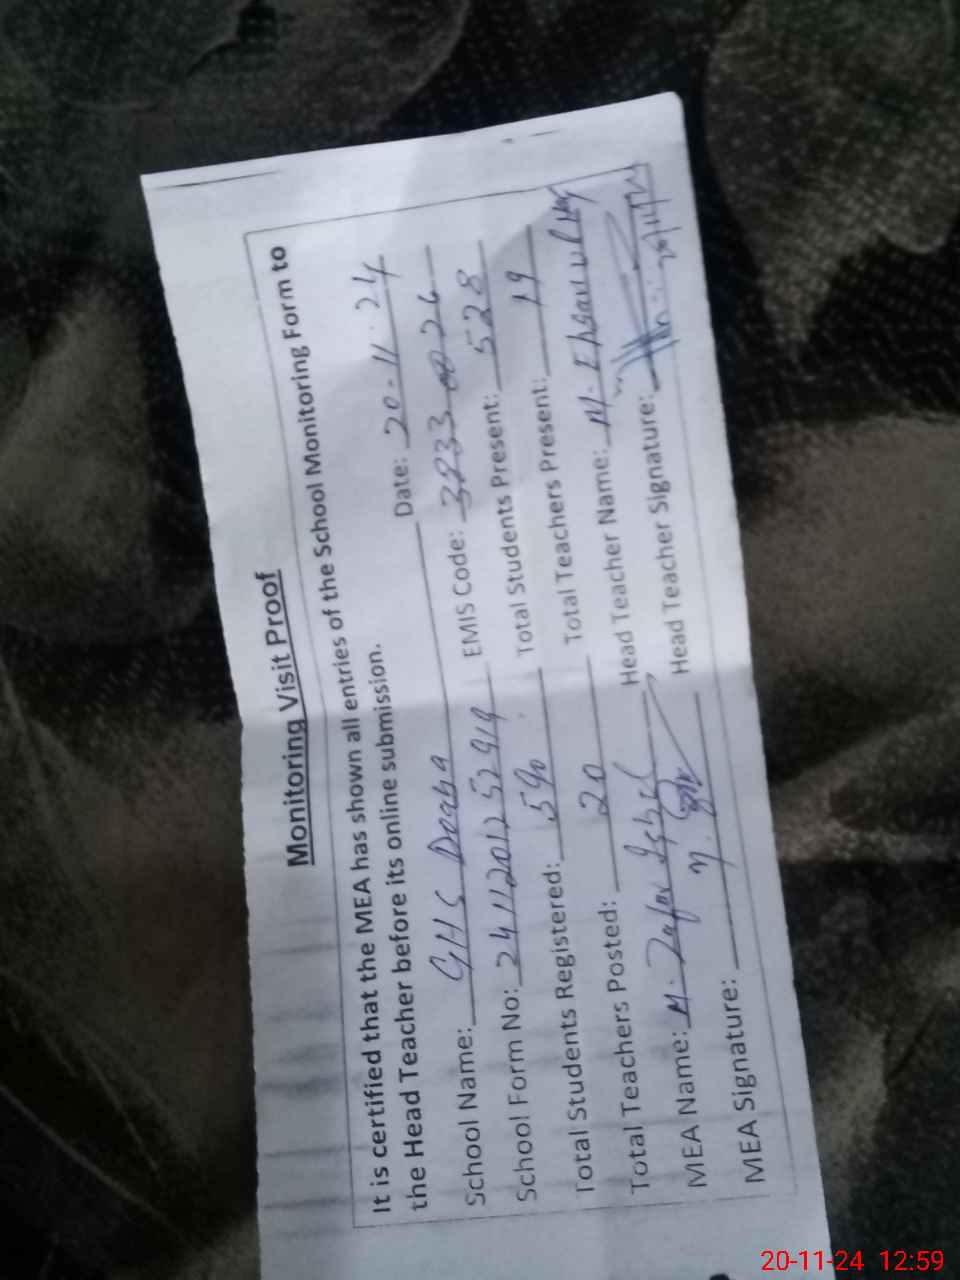 Monitoring Visit Proof
It is certified that the MEA has shown all entries of the School Monitoring Form to
the Head Teacher before its online submission.
Date: 20-11-24
School Name: GHS Doaba EMIS Code: 3833 00 26
School Form No: 2411201252919 Total Students Present: 528
Total Students Registered: 590 Total Teachers Present: 19
Total Teachers Posted: 20 Head Teacher Name: M. Ehsan ul Haq
MEA Name: M. Zafar Iqbal Head Teacher Signature:
MEA Signature:
20-11-24 12:59